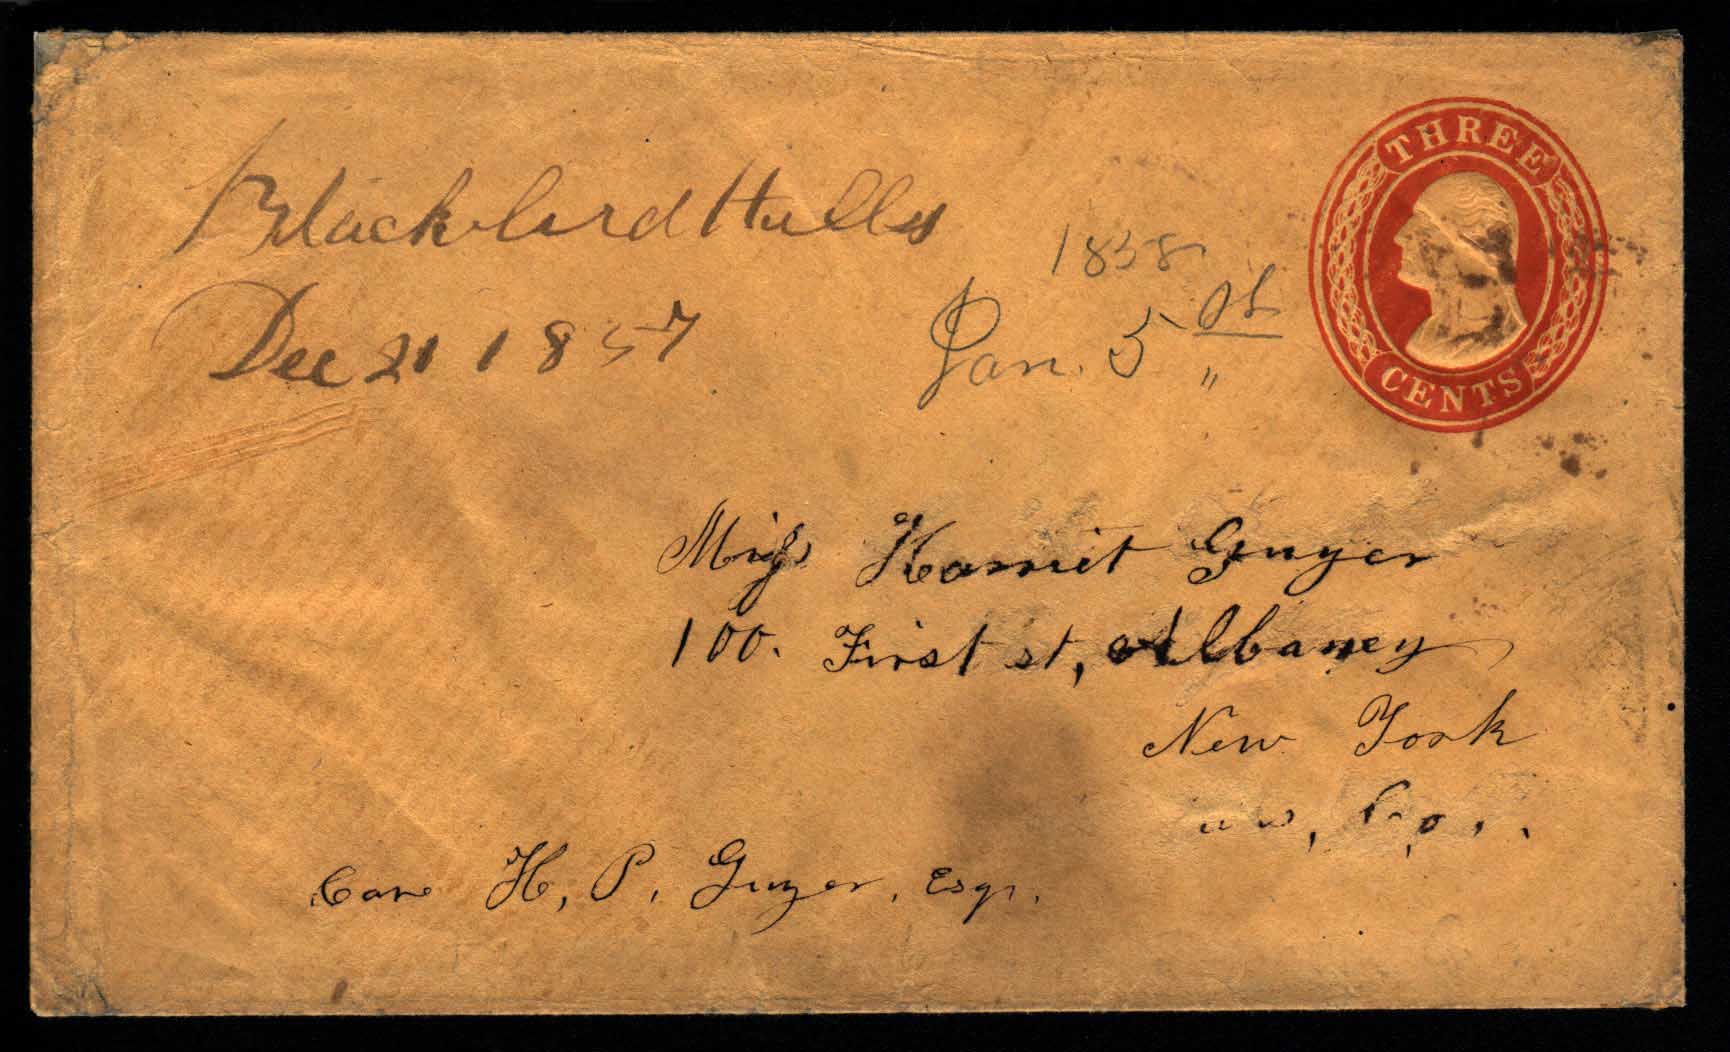 THREE
CENTS
Blackbird Hills
Dec 21 1857
1858
Jan. 5
Miss Harriet Guyer
100. First st, Albaney
New York
Co.
Care H, P, Guyer, Esqr.